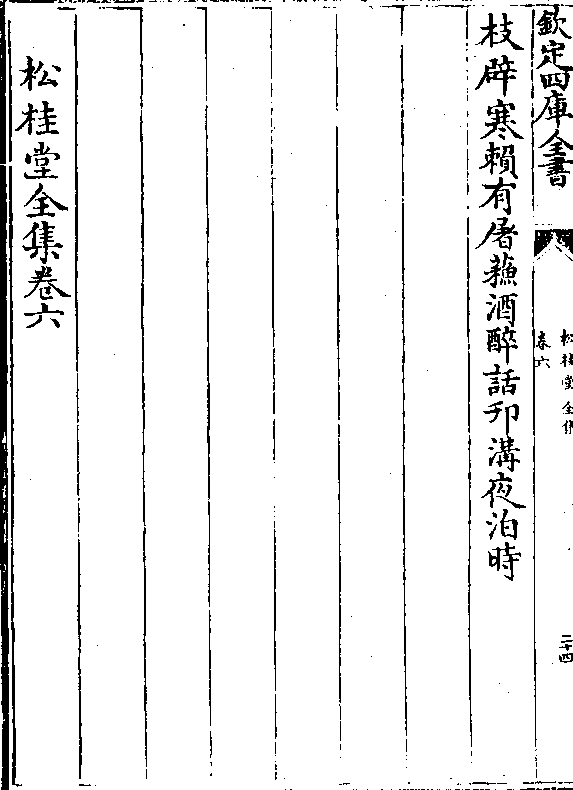 欽定四庫全書
松桂堂全集
卷六
二十四
枝辟寒賴有屠蘓酒醉話邗溝夜泊時
松桂堂全集卷六